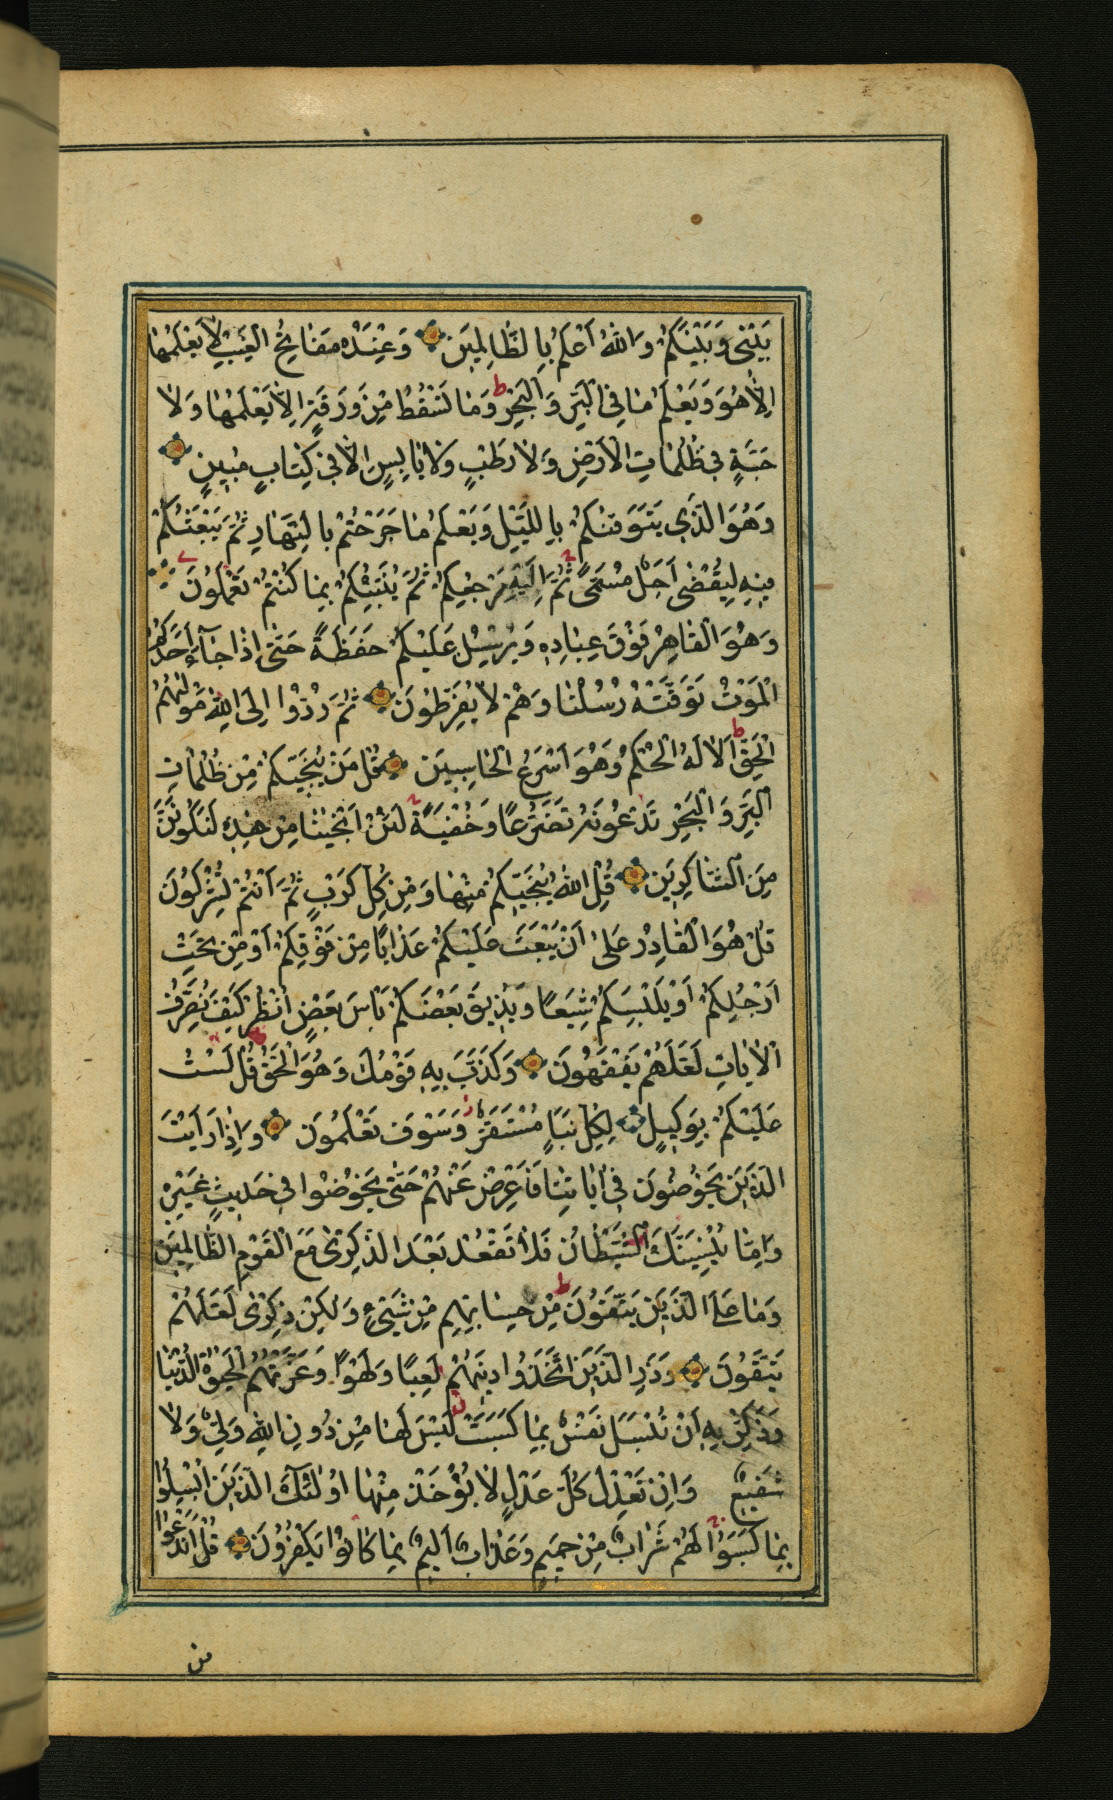 بَيْنِي وَبَيْنَكُمْ وَاللّٰهُ اَعْلَمُ بِالظَّالِمِينَ وَعِنْدَهُ مَفَاتِحُ الْغَيْبِ لَا يَعْلَمُهَا
اِلَّا هُوَ وَيَعْلَمُ مَا فِي الْبَرِّ وَالْبَحْرِ ط وَمَا تَسْقُطُ مِنْ وَرَقَةٍ اِلَّا يَعْلَمُهَا وَلَا
حَبَّةٍ فِي ظُلُمَاتِ الْاَرْضِ وَلَا رَطْبٍ وَلَا يَابِسٍ اِلَّا فِي كِتَابٍ مُبِينٍ
وَهُوَ الَّذِي يَتَوَفّٰكُمْ بِاللَّيْلِ وَيَعْلَمُ مَا جَرَحْتُمْ بِالنَّهَارِ ثُمَّ يَبْعَثُكُمْ
فِيهِ لِيُقْضٰى اَجَلٌ مُسَمًّى ثُمَّ اِلَيْهِ مَرْجِعُكُمْ ثُمَّ يُنَبِّئُكُمْ بِمَا كُنْتُمْ تَعْمَلُونَ
وَهُوَ الْقَاهِرُ فَوْقَ عِبَادِهِ وَيُرْسِلُ عَلَيْكُمْ حَفَظَةً حَتّٰى اِذَا جَآءَ اَحَدَكُمُ
الْمَوْتُ تَوَفَّتْهُ رُسُلُنَا وَهُمْ لَا يُفَرِّطُونَ ثُمَّ رُدُّوا اِلَى اللّٰهِ مَوْلٰيهُمُ
الْحَقِّ ط اَلَا لَهُ الْحُكْمُ وَهُوَ اَسْرَعُ الْحَاسِبِينَ قُلْ مَنْ يُنَجِّيكُمْ مِنْ ظُلُمَاتِ
الْبَرِّ وَالْبَحْرِ تَدْعُونَهُ تَضَرُّعًا وَخُفْيَةً لَئِنْ اَنْجَيْتَنَا مِنْ هٰذِهِ لَنَكُونَنَّ
مِنَ الشَّاكِرِينَ قُلِ اللّٰهُ يُنَجِّيكُمْ مِنْهَا وَمِنْ كُلِّ كَرْبٍ ثُمَّ اَنْتُمْ تُشْرِكُونَ
قُلْ هُوَ الْقَادِرُ عَلٰى اَنْ يَبْعَثَ عَلَيْكُمْ عَذَابًا مِنْ فَوْقِكُمْ اَوْ مِنْ تَحْتِ
اَرْجُلِكُمْ اَوْ يَلْبِسَكُمْ شِيَعًا وَيُذِيقَ بَعْضَكُمْ بَاْسَ بَعْضٍ اُنْظُرْ كَيْفَ نُصَرِّفُ
الْاٰيَاتِ لَعَلَّهُمْ يَفْقَهُونَ وَكَذَّبَ بِهِ قَوْمُكَ وَهُوَ الْحَقُّ قُلْ لَسْتُ
عَلَيْكُمْ بِوَكِيلٍ لِكُلِّ نَبَاٍ مُسْتَقَرٌّ وَسَوْفَ تَعْلَمُونَ وَاِذَا رَاَيْتَ
الَّذِينَ يَخُوضُونَ فِي اٰيَاتِنَا فَاَعْرِضْ عَنْهُمْ حَتّٰى يَخُوضُوا فِي حَدِيثٍ غَيْرِهِ
وَاِمَّا يُنْسِيَنَّكَ الشَّيْطَانُ فَلَا تَقْعُدْ بَعْدَ الذِّكْرٰى مَعَ الْقَوْمِ الظَّالِمِينَ
وَمَا عَلَى الَّذِينَ يَتَّقُونَ مِنْ حِسَابِهِمْ مِنْ شَيْءٍ وَلٰكِنْ ذِكْرٰى لَعَلَّهُمْ
يَتَّقُونَ وَذَرِ الَّذِينَ اتَّخَذُوا دِينَهُمْ لَعِبًا وَلَهْوًا وَغَرَّتْهُمُ الْحَيٰوةُ الدُّنْيَا
وَذَكِّرْ بِهِ اَنْ تُبْسَلَ نَفْسٌ بِمَا كَسَبَتْ لَيْسَ لَهَا مِنْ دُونِ اللّٰهِ وَلِيٌّ وَلَا
شَفِيعٌ وَاِنْ تَعْدِلْ كُلَّ عَدْلٍ لَا يُؤْخَذْ مِنْهَا اُولٰئِكَ الَّذِينَ اُبْسِلُوا
بِمَا كَسَبُوا لَهُمْ شَرَابٌ مِنْ حَمِيمٍ وَعَذَابٌ اَلِيمٌ بِمَا كَانُوا يَكْفُرُونَ قُلْ اَنَدْعُوا
من